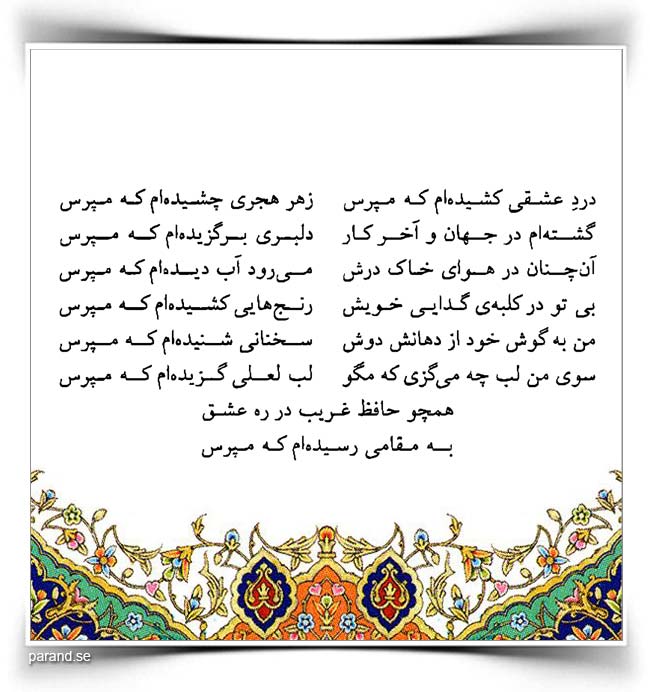 دردِ عشقی کشیده‌ام که مپرس    زهر هجری چشیده‌ام که مپرس
گشته‌ام در جهان و آخر کار    دلبری برگزیده‌ام که مپرس
آن‌چنان در هوای خاک درش    می‌رود آب دیده‌ام که مپرس
بی تو در کلبه‌ی گدایی خویش    رنج‌هایی کشیده‌ام که مپرس
من به گوش خود از دهانش دوش    سخنانی شنیده‌ام که مپرس
سوی من لب چه می‌گزی که مگو    لب لعلی گزیده‌ام که مپرس
همچو حافظ غریب در ره عشق
به مقامی رسیده‌ام که مپرس
parand.se